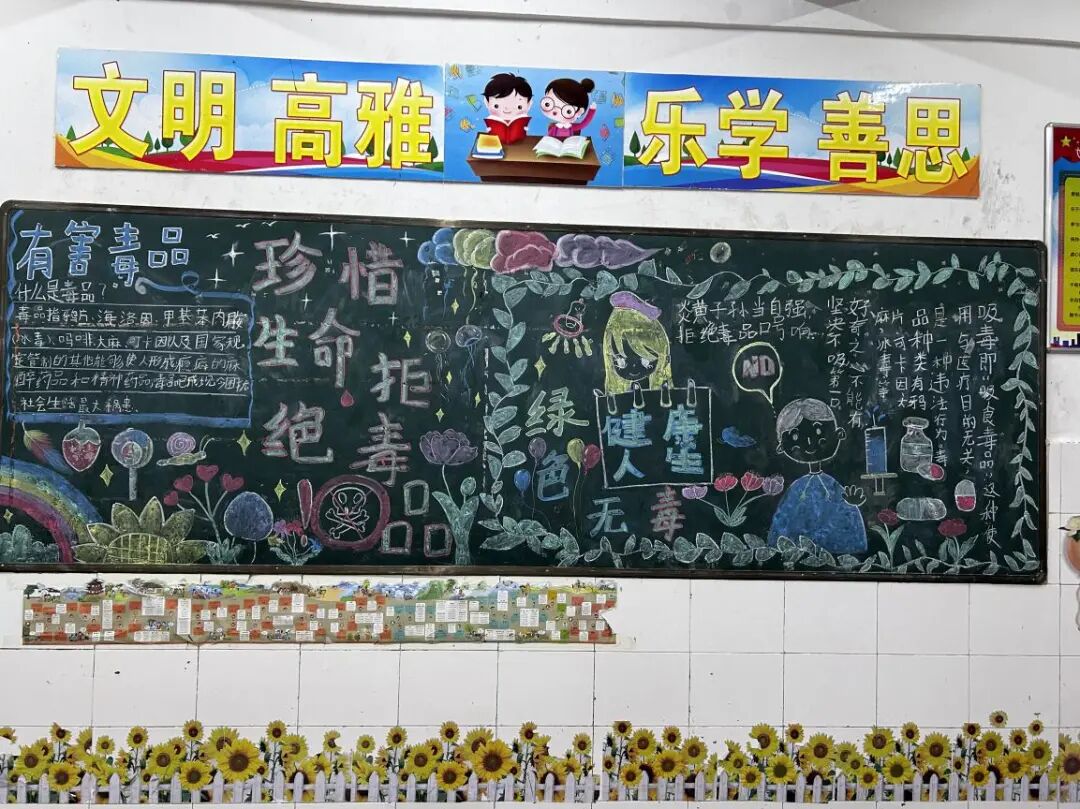 文明 高雅
乐学 善思
有害毒品
什么是毒品?
毒品指鸦片、海洛因、甲基苯丙胺
(冰毒)、吗啡、大麻、可卡因以及国家规
定管制的其他能够使人形成瘾癖的麻
醉药品和精神药品,毒品已成现今困扰
社会生活最大祸患。
珍惜
生命
拒
绝
毒
品
炎黄子孙当自强
拒绝毒品口号响
好奇之心不能有
坚决不吸第一口
NO
绿
色
健康
人生
无
毒
吸毒即“吸食毒品”这种使
用与医疗目的无关
是一种违法行为毒
品种类有鸦
片、可卡因、大
麻、冰毒等